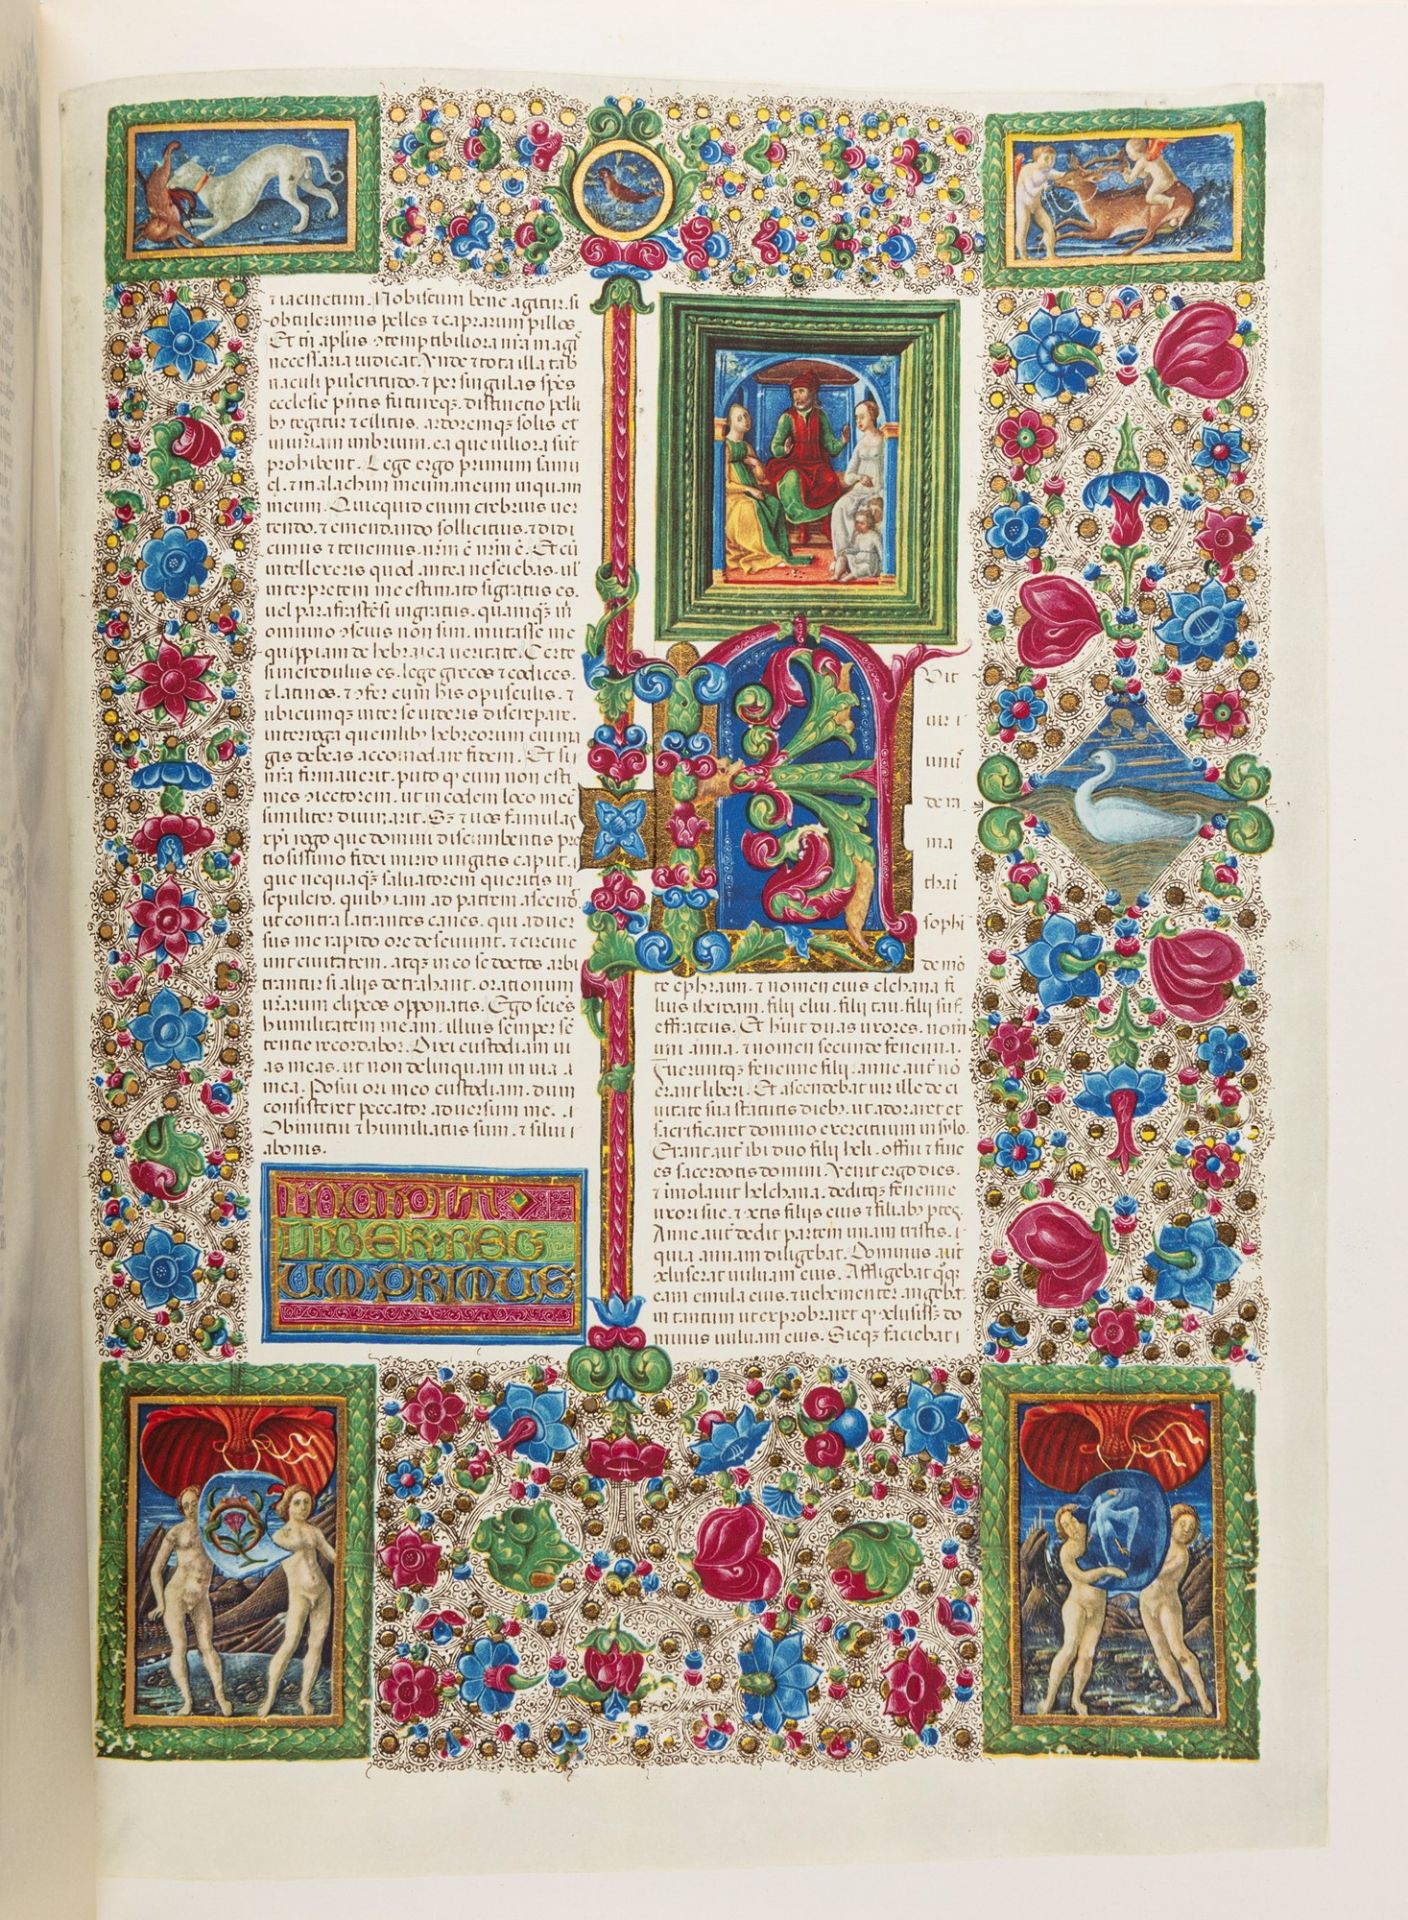 ⁊ iacinctum. Nobiscum bene agitur, si
obtulerimus pelles ⁊ caprarum pillos.
necessaria iudicat. Vnde ⁊ tota illa tab
naculi pulcritudo, ⁊ per singulas spēs
ecclesie pn̄tis futureq;. distinctio pelli
bꝫ tegitur ⁊ ciliciis. ardoremq; solis et
iniuriam imbrium. ea que uiliora sūt
prohibent. Lege ergo primum samu
el. ⁊ malachim meum. meum inquam
meum. Quicquid enim crebrius uer
tendo. ⁊ emendando sollicitius. ⁊ didi
cimus ⁊ tenemus. nr̄m ē nr̄m ē. Et cū
intellexeris quod antea nesciebas. uľ
interpretem me estimato si gratus es.
uel parafrastēsi ingratus. quamq̄ꝫ m̄
omnino ↄscius non sim. mutasse me
quippiam de hebraica ueritate. Certe
si incredulus es. lege grecos ⁊ codices.
⁊ latinos. ⁊ ↄfer cum his opusculis. ⁊
ubicumqꝫ inter se uideris discrepare.
interroga quemlibꝫ hebreorum cui ma
gis debeas accomodare fidem. Et si
nr̄a firmauerit. puto qꝫ eum non esti
mes ↄiectorem. ut in eodem loco mec̄
similiter diuinarit. Sꝫ ⁊ uos famulas
xp̄i rogo que domini discumbentis pre
tiosissimo fidei mirro ungitis caput. ⁊
que nequaq̄ꝫ saluatorem queritis in
sepulcro. quibꝫ iam ad patrem ascend̄.
ut contra latrantes canes. qui aduer
sus me rapido ore deseuiunt. ⁊ circue
unt ciuitatem. atqꝫ in eo se doctos arbi
trantur si alijs detrahant. orationum
urarum clipeos opponatis. Ego sciēs
humilitatem meam. illius semper sē
tentie recordabor. Dixi custodiam ui
as meas. ut non delinquam in lingua
mea. Posui ori meo custodiam. dum
consisteret peccator aduersum me. ⁊
Obmutui ⁊ humiliatus sum. ⁊ silui
abonis.
INCIPIT
LIBER REG
UM. PRIMUS
FUit
uir
unꝰ
de ra
ma
thai
sophi
de mō
te ephraim. ⁊ nomen eius elchana fi
lius ieroam. filij eliu. filij tau. filij suf.
effrateus. Et huit duas uxores. nom̄
uni anna. ⁊ nomen secunde fenenna.
Fueruntqꝫ fenenne filij. anne aut̄ nō
erant liberi. Et ascendebat uir ille de ci
uitate sua statutis diebꝫ. ut adoraret et
sacrificaret domino exercituum in sylo.
Erant aut̄ ibi duo filij heli. offni ⁊ fine
es sacerdotis domini. Venit ergo dies.
⁊ īmolauit helchana. deditqꝫ fenenne
uxori sue. ⁊ ↄctis filijs eius ⁊ filiabꝫ ptes.
Anne aut̄ dedit partem unam tristis.
quia annam diligebat. Dominus aut̄
ↄcluserat uuluam eius. Affligebat q̄qꝫ
eam emula eius. ⁊ uehementer angebat.
in tantum ut exprobraret qꝫ ↄclusiss̄ do
minus uuluam eius. Sicqꝫ faciebat